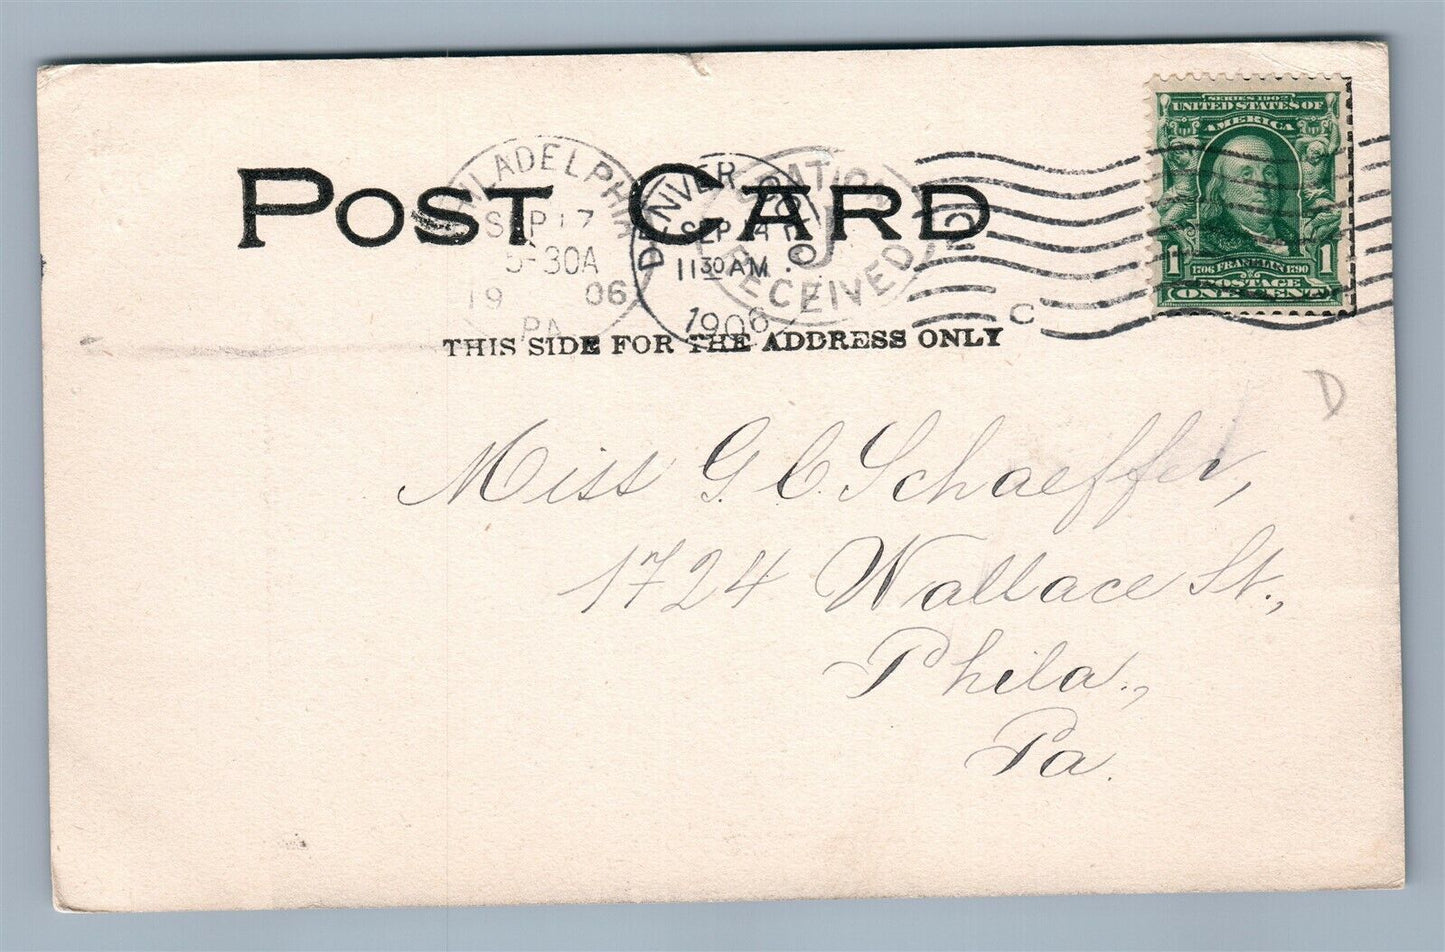 POST CARD
THIS SIDE FOR THE ADDRESS ONLY
PHILADELPHIA
SEP 17
5-30A
1906
PA
DENVER, COLO.
SEP 14
11 30 AM
1906
RECEIVED
C
SERIES 1902
UNITED STATES OF
AMERICA
1 1706 FRANKLIN 1790 1
POSTAGE
ONE CENT
D
Miss G. C. Schaeffer,
1724 Wallace St.,
Phila.,
Pa.